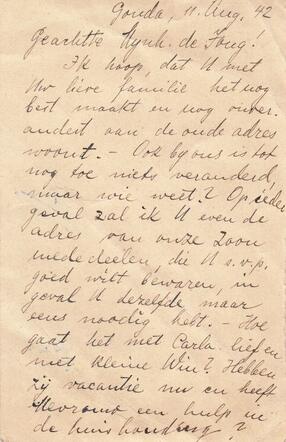 Gouda, 11 Aug. 42
Geachte Mijnh. de Jong!
Ik hoop, dat U met
Uw lieve familie het nog
best maakt en nog onver-
andert aan de oude adres
woont. – Ook bij ons is tot
nog toe niets veranderd,
maar wie weet? Op ieder
geval zal ik U even de
adres van onze Zoon
mededeelen, die U s.v.p.
goed wilt bewaren, in
geval U dezelfde maar
eens noodig hebt. – Hoe
gaat het met Carla lief en
met kleine Wim? Hebben
zij vacantie nu en heeft
Mevrouw een hulp in
de huishouding?